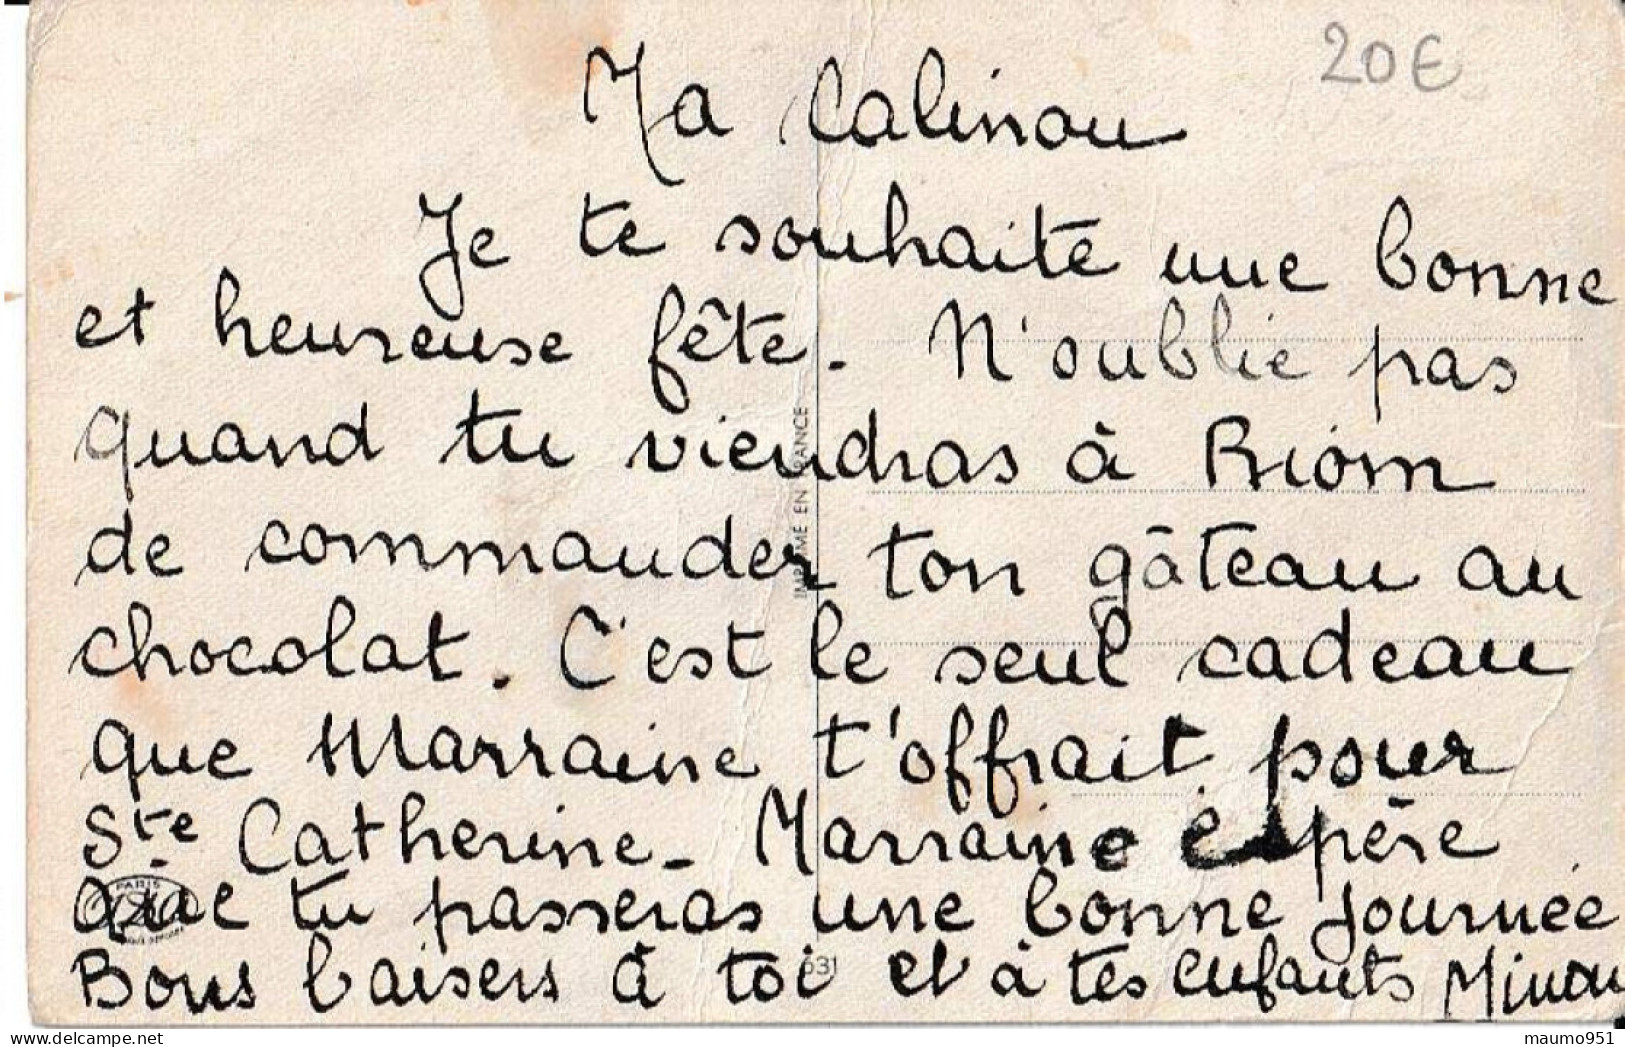 20€
Ma Calinou
Je te souhaite une bonne
et heureuse fête. N'oublie pas
quand tu viendras à Riom
de commander ton gâteau au
chocolat. C'est le seul cadeau
que Marraine t'offrait pour
Ste Catherine. Marraine espère
que tu passeras une bonne journée
Bons baisers à toi et à tes enfants Minou
IMPRIMÉ EN FRANCE
PARIS
631
maumo951